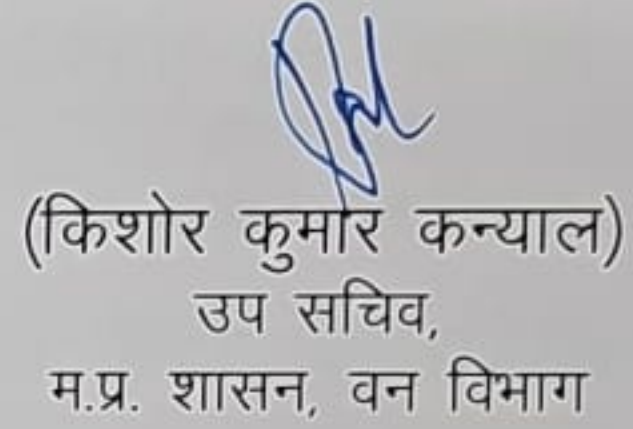 (किशोर कुमार कन्याल)
उप सचिव,
म.प्र. शासन, वन विभाग